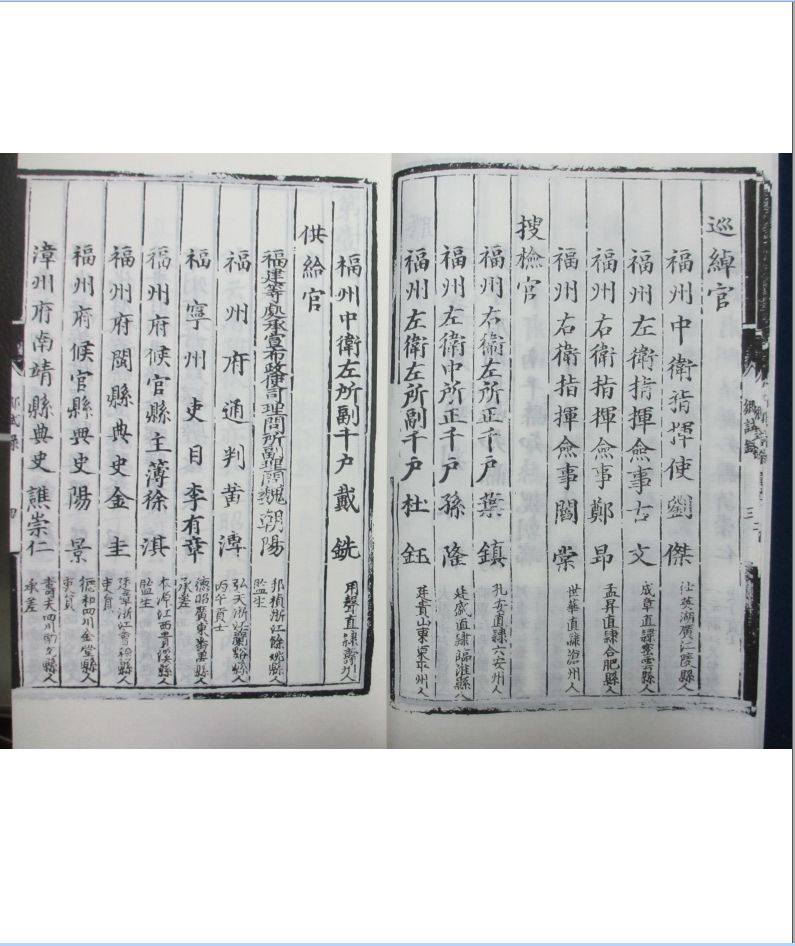 巡綽官
福州中衛指揮使劉傑 仕英湖廣江陵縣人
福州左衛指揮僉事古文 成章直隸密雲縣人
福州右衛指揮僉事鄭昂 孟昇直隸合肥縣人
福州右衛指揮僉事閻棠 世華直隸滄州人
搜檢官
福州右衛左所正千戶葉鎮 直隸六安州人
福州左衛中所正千戶孫隆 廷威直隸臨淮縣人
福州左衛左所副千戶杜鈺 廷貴山東東平州人
鄉試錄
三
福州中衛左所副千戶戴銑 用聲直隸壽州人
供給官
福建等處承宣布政使司理問所副理問魏朝陽 邦禎浙江餘姚縣人 監生
福州府通判黃溥 弘天浙江蘭谿縣人 丙午貢士
福寧州吏目李有章 德昭廣東番禺縣人 承差
福州府候官縣主薄徐淇 本源江西貴溪縣人 監生
福州府閩縣典史金圭 廷章浙江會稽縣人 吏員
福州府候官縣典史陽景 德和四川金堂縣人 吏員
漳州府南靖縣典史譙崇仁 四川縣人 承差